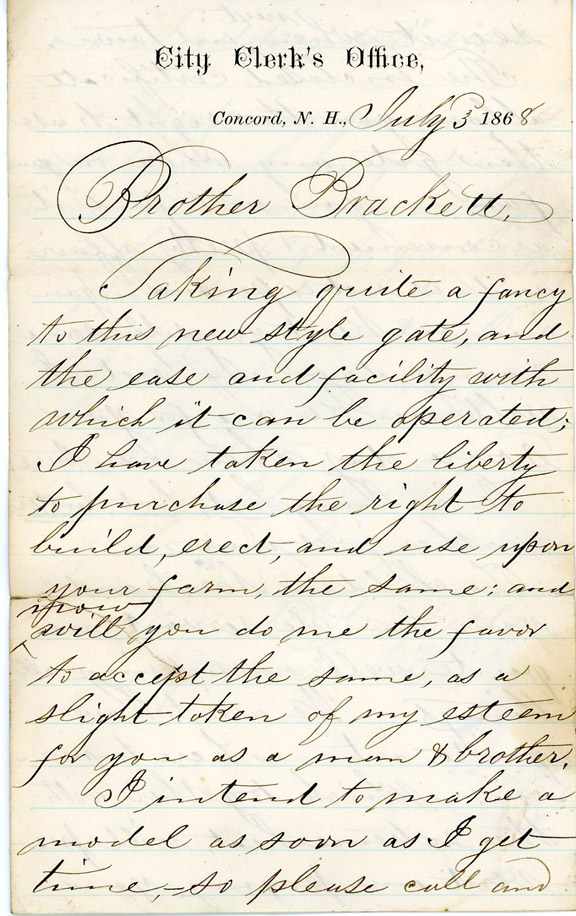 City Clerk's Office,
Concord, N. H., July 3 1868
Brother Brackett,
Taking quite a fancy
to this new style gate, and
the ease and facility with
which it can be operated;
I have taken the liberty
to purchase the right to
build, erect, and use upon
your farm, the same; and
now
will you do me the favor
to accept the same, as a
slight token of my esteem
for you as a man & brother.
I intend to make a
model as soon as I get
time,—so please call and